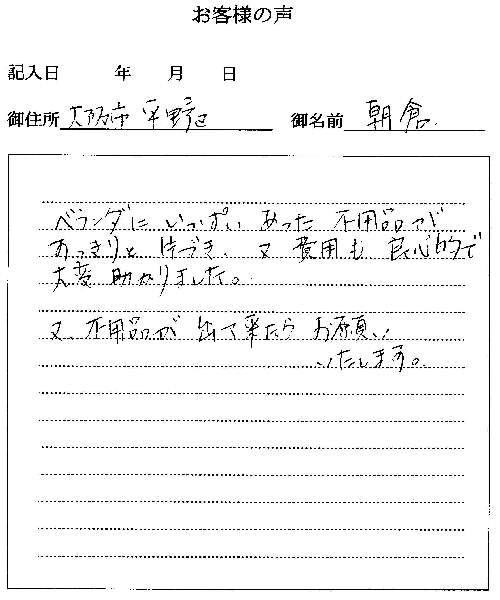 お客様の声
記入日 年 月 日
御住所 大阪市 平野区 御名前 朝倉.
ベランダに いっぱい あった 不用品が
あっさりと 片づき、又 費用も 良心的で
大変 助かりました。
又 不用品が 出て来たら お願い
いたします。